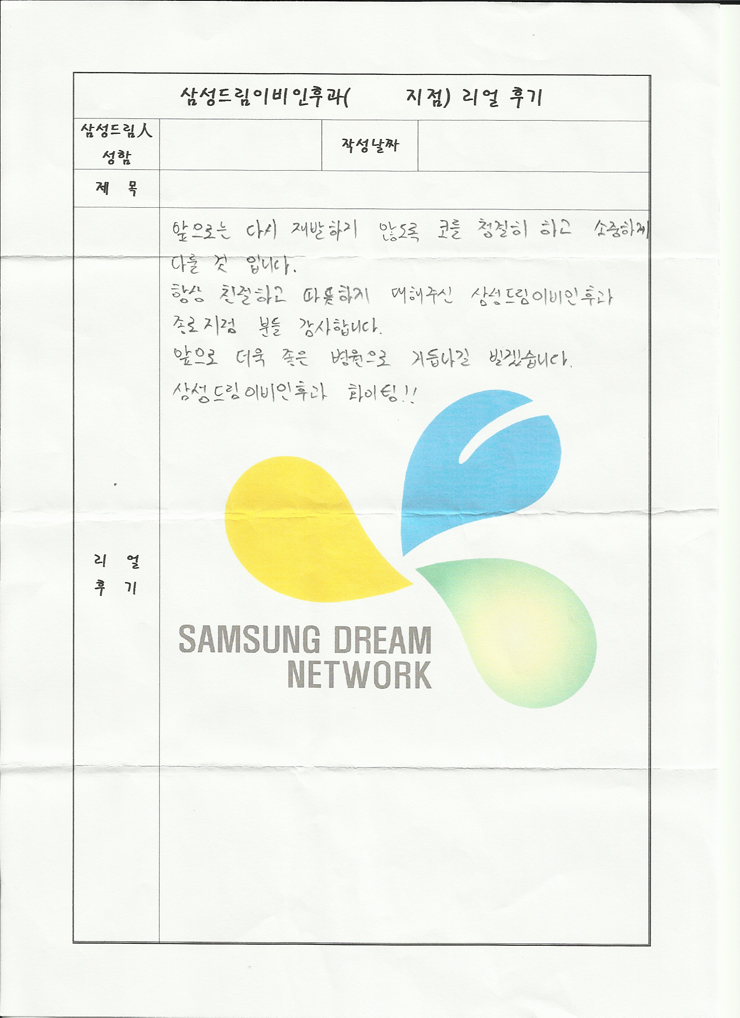 삼성드림이비인후과(        지점) 리얼 후기
삼성드림人
성함
작성날짜
제 목
앞으로는 다시 재발하지 않도록 코를 청결히 하고 소중하게
다룰 것 입니다.
항상 친절하고 따뜻하게 대해주신 삼성드림이비인후과
종로지점 분들 감사합니다.
앞으로 더욱 좋은 병원으로 거듭나길 빌겠습니다.
삼성드림이비인후과 화이팅!!
리 얼
후 기
SAMSUNG DREAM
NETWORK